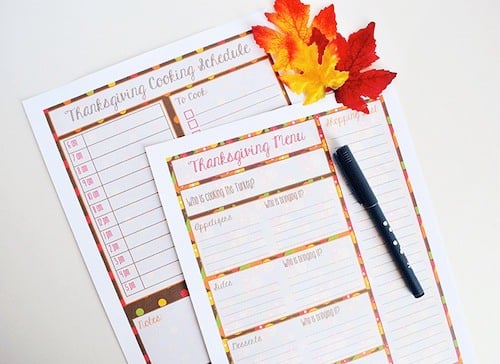 Thanksgiving Cooking Schedule
To Cook
6 am
7 am
8 am
9 am
10 am
11 am
12 pm
1 pm
2 pm
3 pm
4 pm
5 pm
Notes
Thanksgiving Menu
Shopping List
Who is cooking the Turkey?
Appetizers
Who is bringing it?
Sides
Who is bringing it?
Desserts
Who is bringing it?